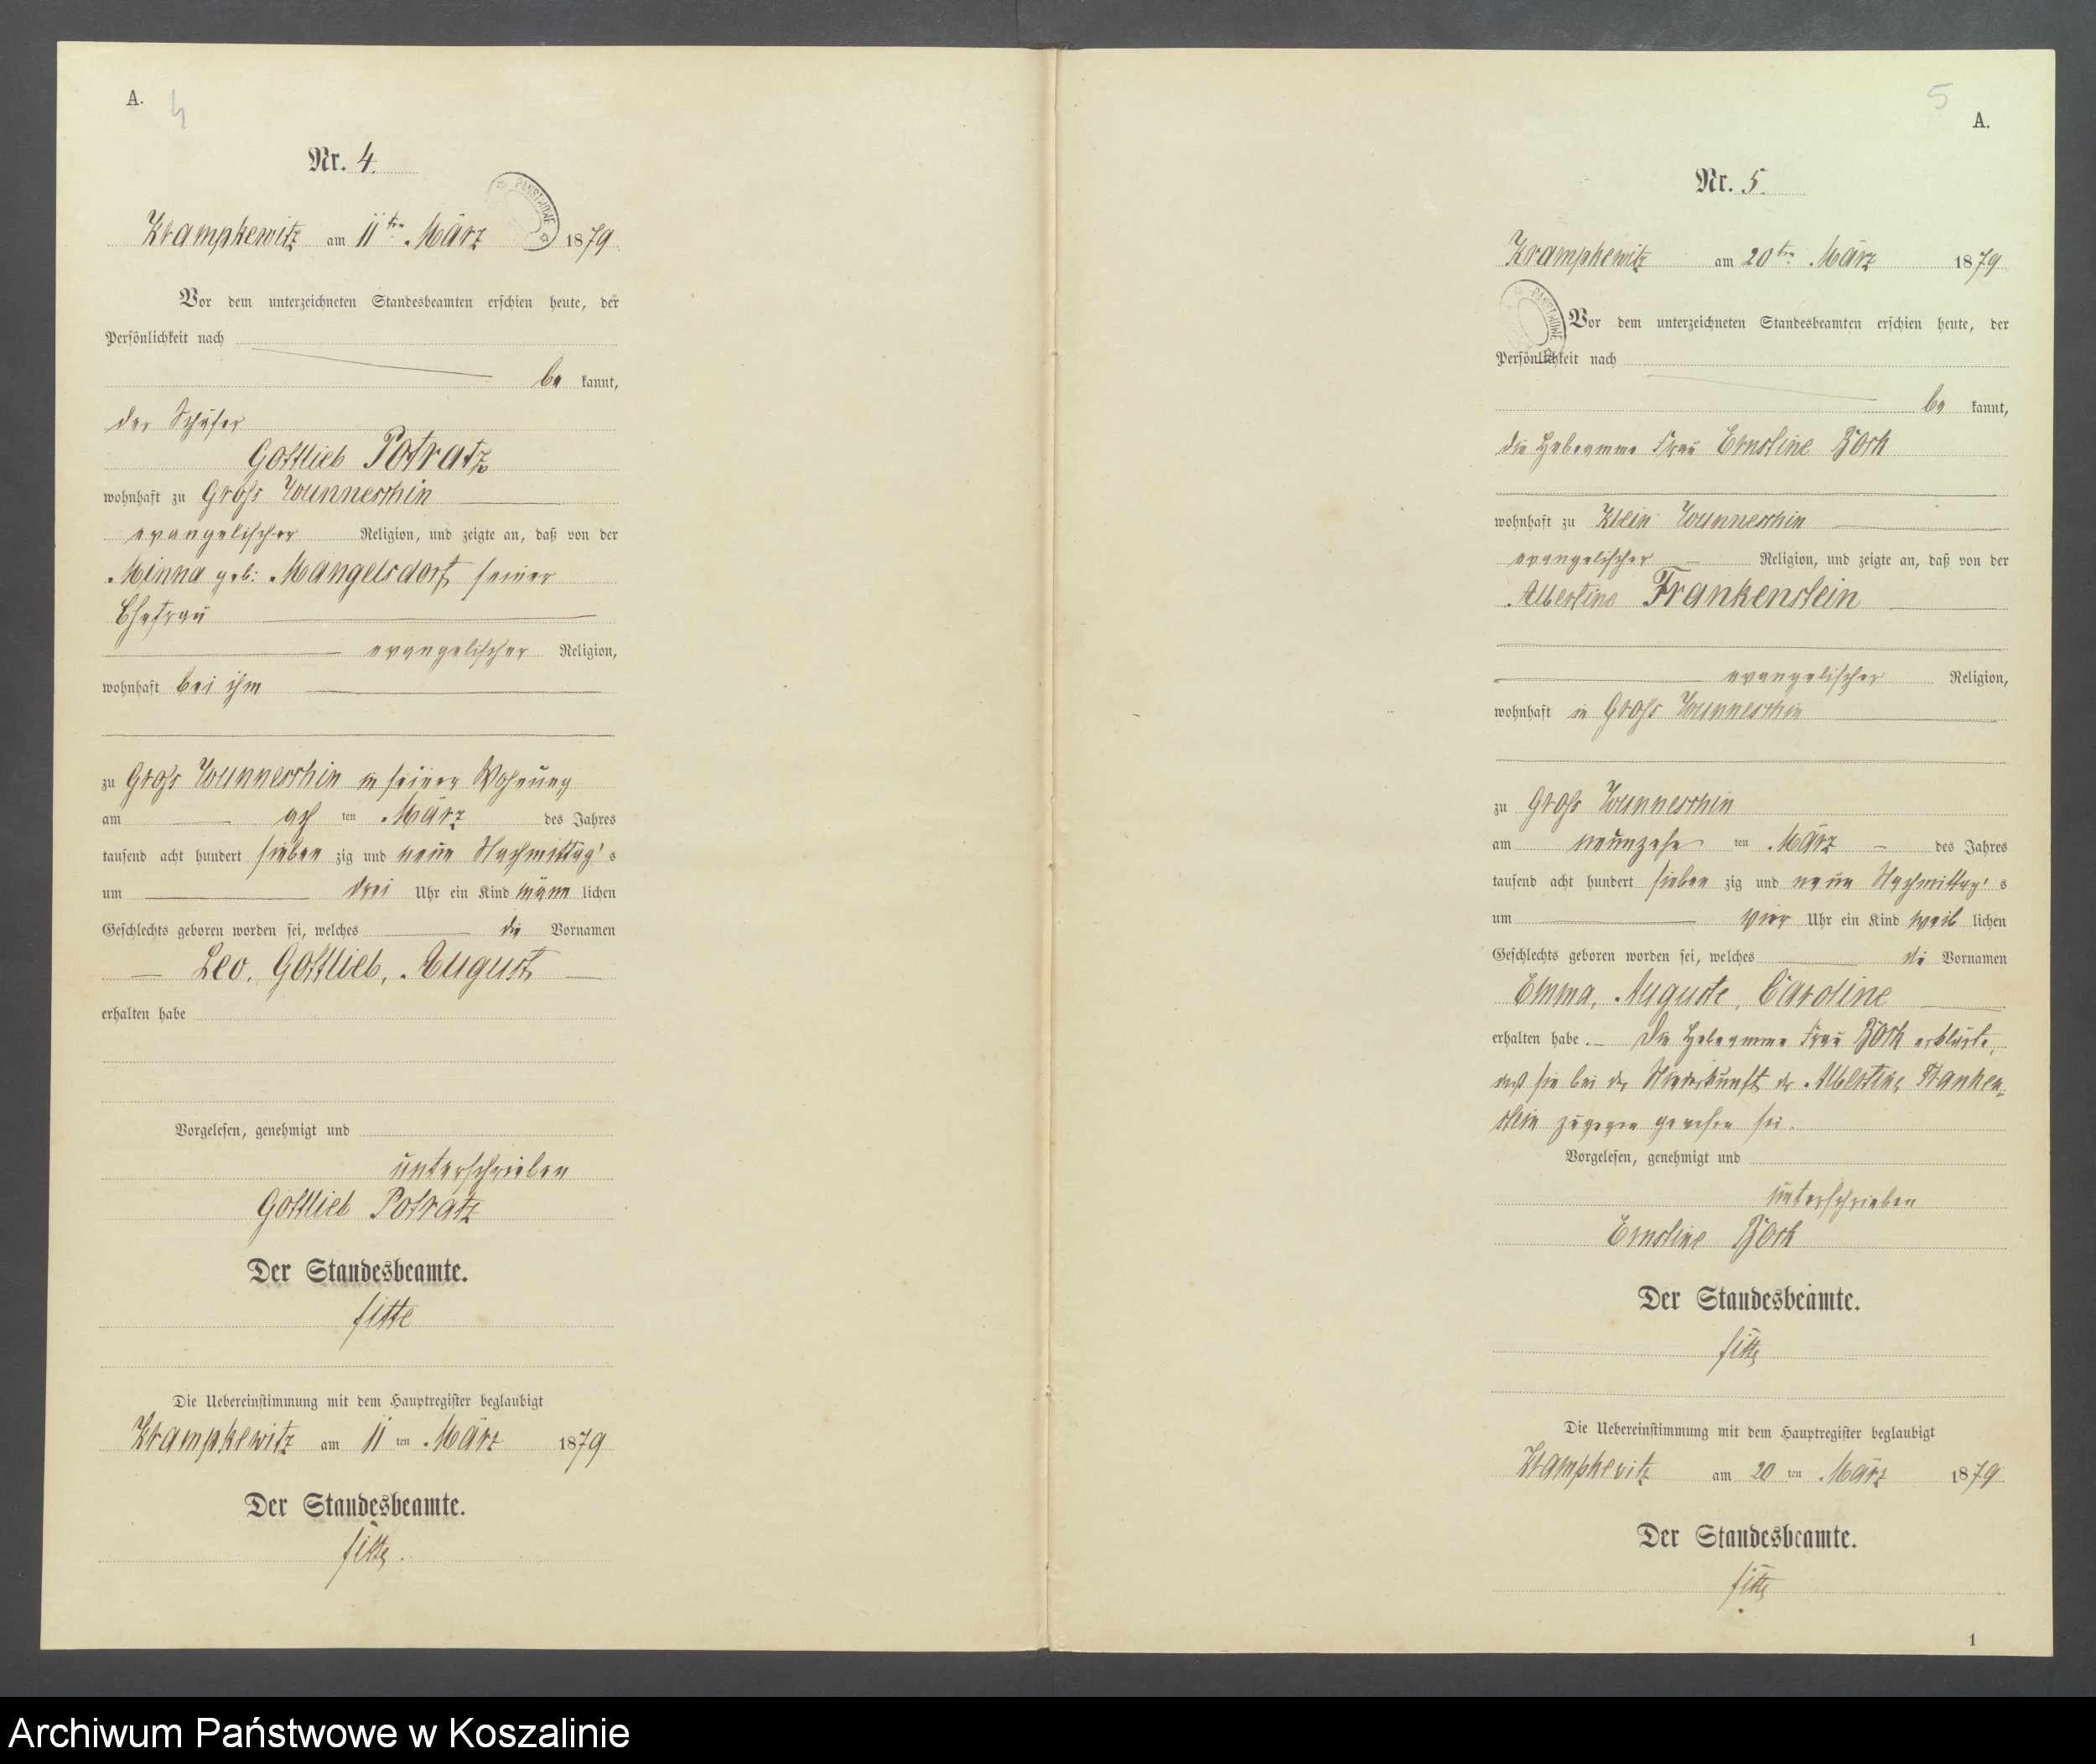 A.
4
Nr. 4.
PAŃSTWOWE
Krampkewitz am 11ten März 1879
Vor dem unterzeichneten Standesbeamten erschien heute, der
Persönlichkeit nach
be kannt,
der Schäfer
Gottlieb Potratz
wohnhaft zu Gross Wunneschin
evangelischer Religion, und zeigte an, daß von der
Minna geb: Mangelsdorf, seiner
Ehefrau
evangelischer Religion,
wohnhaft bei ihm
zu Gross Wunneschin in seiner Wohnung
am ach ten März des Jahres
tausend acht hundert sieben zig und neun Nachmittag's
um drei Uhr ein Kind männ lichen
Geschlechts geboren worden sei, welches die Vornamen
Leo, Gottlieb, August
erhalten habe
Vorgelesen, genehmigt und
unterschrieben
Gottlieb Potratz
Der Standesbeamte.
Die Uebereinstimmung mit dem Hauptregister beglaubigt
Krampkewitz am 11 ten März 1879
Der Standesbeamte.
5
A.
Nr. 5.
Krampkewitz am 20ten März 1879
PAŃSTWOWE
Vor dem unterzeichneten Standesbeamten erschien heute, der
Persönlichkeit nach
be kannt,
die Hebeamme Frau Ernstine
wohnhaft zu Klein Wunneschin
evangelischer Religion, und zeigte an, daß von der
Albertine Frankenstein
evangelischer Religion,
wohnhaft in Gross Wunneschin
zu Gross Wunneschin
am neunzehn ten März des Jahres
tausend acht hundert sieben zig und neun Nachmittag's
um vier Uhr ein Kind weib lichen
Geschlechts geboren worden sei, welches die Vornamen
Emma, Auguste, Caroline
erhalten habe. Die Hebeamme Frau erklärte,
daß sie bei der Niederkunft der Albertine Franken-
stein zugegen gewesen sei.
Vorgelesen, genehmigt und
unterschrieben
Ernstine
Der Standesbeamte.
Die Uebereinstimmung mit dem Hauptregister beglaubigt
Krampkewitz am 20 ten März 1879
Der Standesbeamte.
1
Archiwum Państwowe w Koszalinie